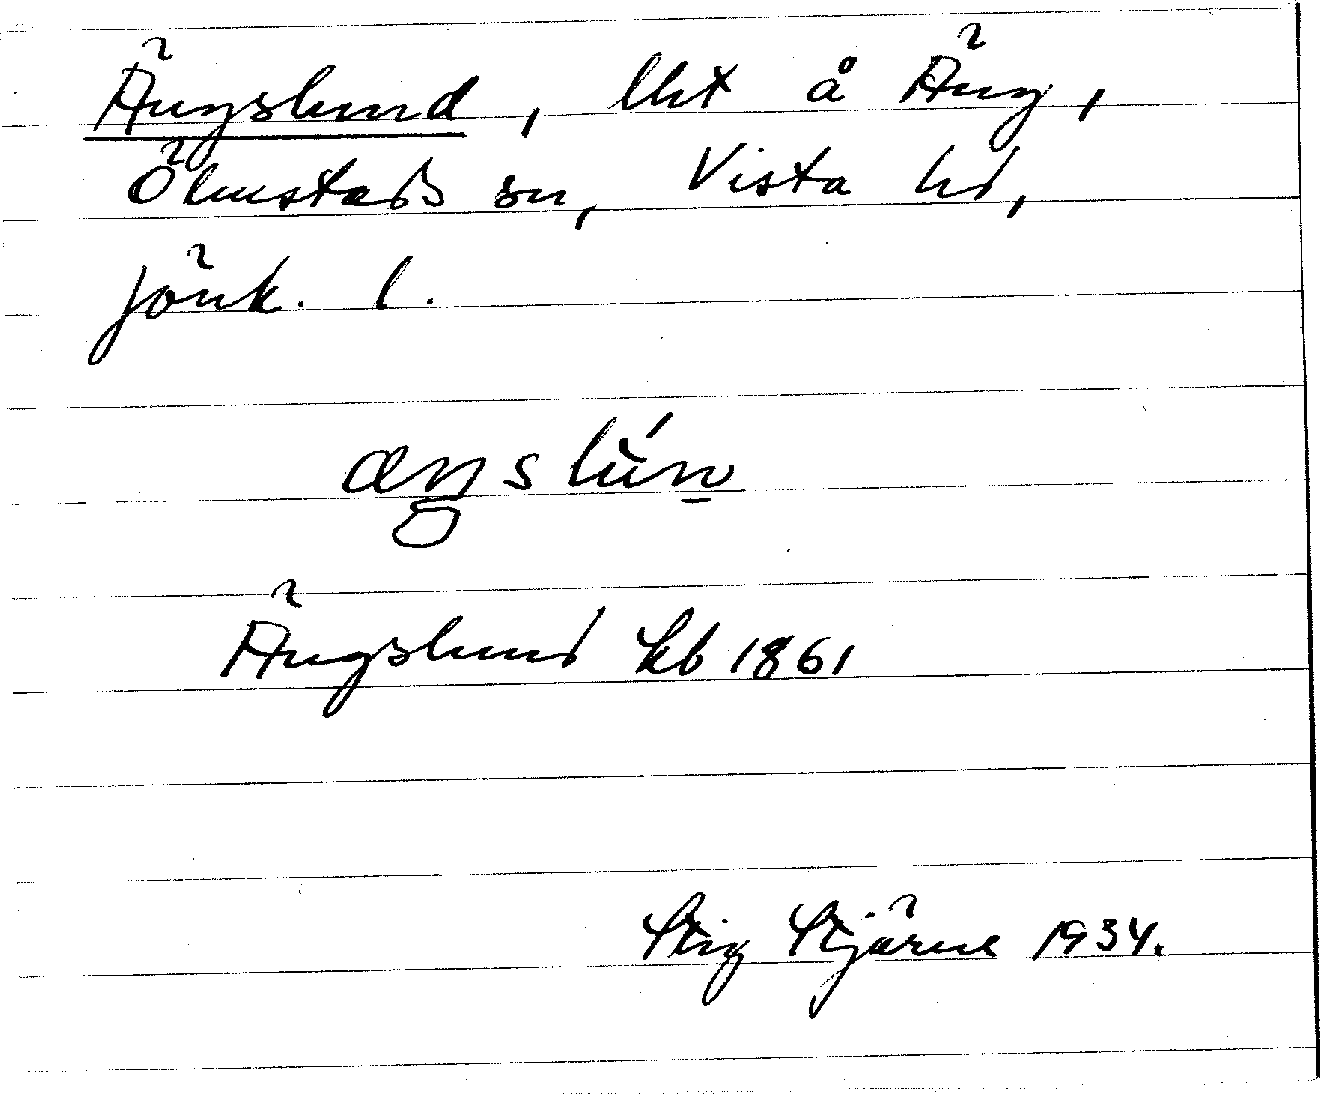 Ängslund, lht å Äng,
Ölmstads sn, Vista hd,
Jönk. l.
Ängslund kb 1861
Stig Stjärne 1934.